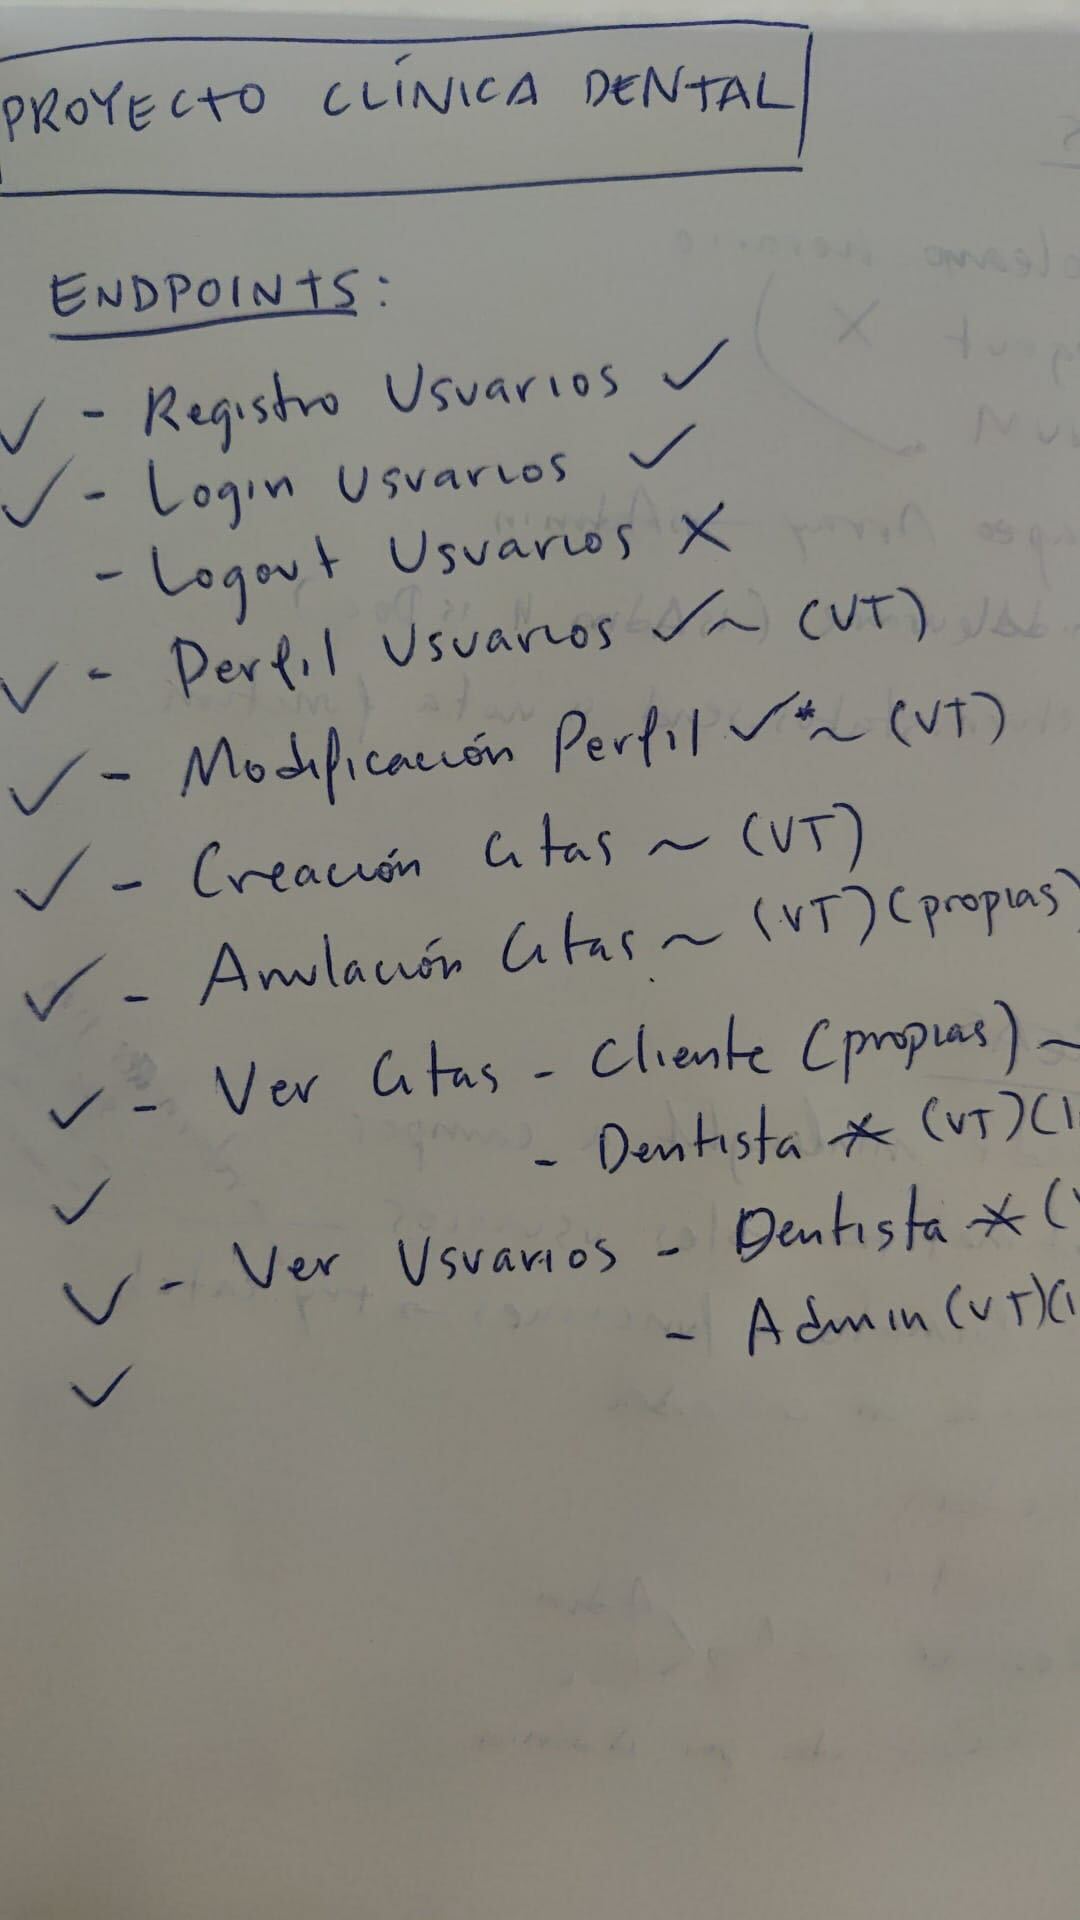 PROYECTO CLÍNICA DENTAL
ENDPOINTS:
✓ - Registro Usuarios ✓
✓ - Login Usuarios ✓
- Logout Usuarios X
✓ - Perfil Usuarios ✓ ~ (VT)
✓ - Modificación Perfil ✓* ~ (VT)
✓ - Creación Citas ~ (VT)
✓ - Anulación Citas ~ (VT) (propias)
✓ - Ver Citas - Cliente (propias) ~
✓ - Dentista * (VT)(
✓ - Ver Usuarios - Dentista * (
✓ - Admin (VT)(